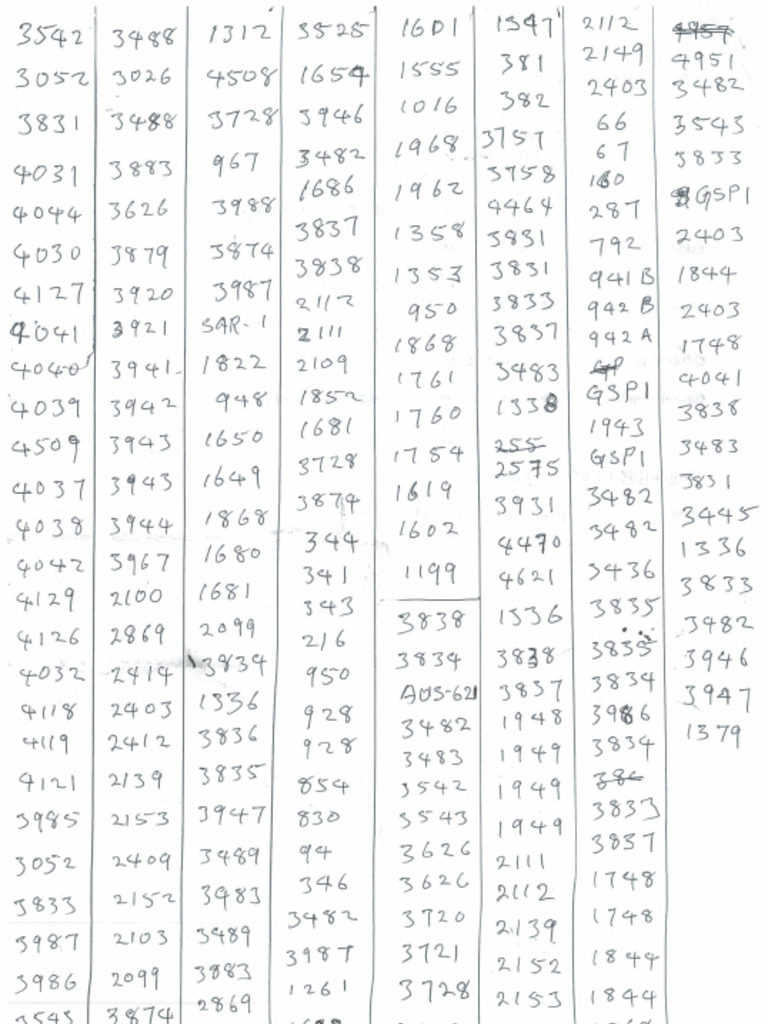 3542
3052
3831
4031
4044
4030
4127
4041
4040
4039
4509
4037
4038
4042
4129
4126
4032
4118
4119
4121
3985
3052
3833
3987
3986
3543
3488
3026
3488
3883
3626
3879
3920
3921
3941
3942
3943
3943
3944
3967
2100
2869
2414
2403
2412
2139
2153
2409
2152
2103
2099
3874
1312
4508
3728
967
3988
3874
3987
SAR-1
1822
948
1650
1649
1868
1680
1681
2099
3834
1336
3836
3835
3947
3489
3983
3489
3883
2869
3525
1654
3946
3482
1686
3837
3838
2112
2111
2109
1852
1681
3728
3874
344
341
343
216
950
928
928
854
830
94
346
3482
3987
1261
1601
1555
1016
1968
1962
1358
1353
950
1868
1761
1760
1754
1619
1602
1199
3838
3834
AUS-621
3482
3483
3542
3543
3626
3626
3720
3721
3728
1347
381
382
3757
3758
4464
3831
3831
3833
3837
3483
1338
255
2575
3931
4470
4621
1336
3838
3837
1948
1949
1949
1949
2111
2112
2139
2152
2153
2112
2149
2403
66
67
160
287
792
941B
942 B
942 A
GP
GSP1
1943
GSP1
3482
3482
3436
3835
3835
3834
3986
3834
386
3833
3837
1748
1748
1844
1844
4951
3482
3543
3833
GSP1
2403
1844
2403
1748
4041
3838
3483
3831
3445
1336
3833
3482
3946
3947
1379